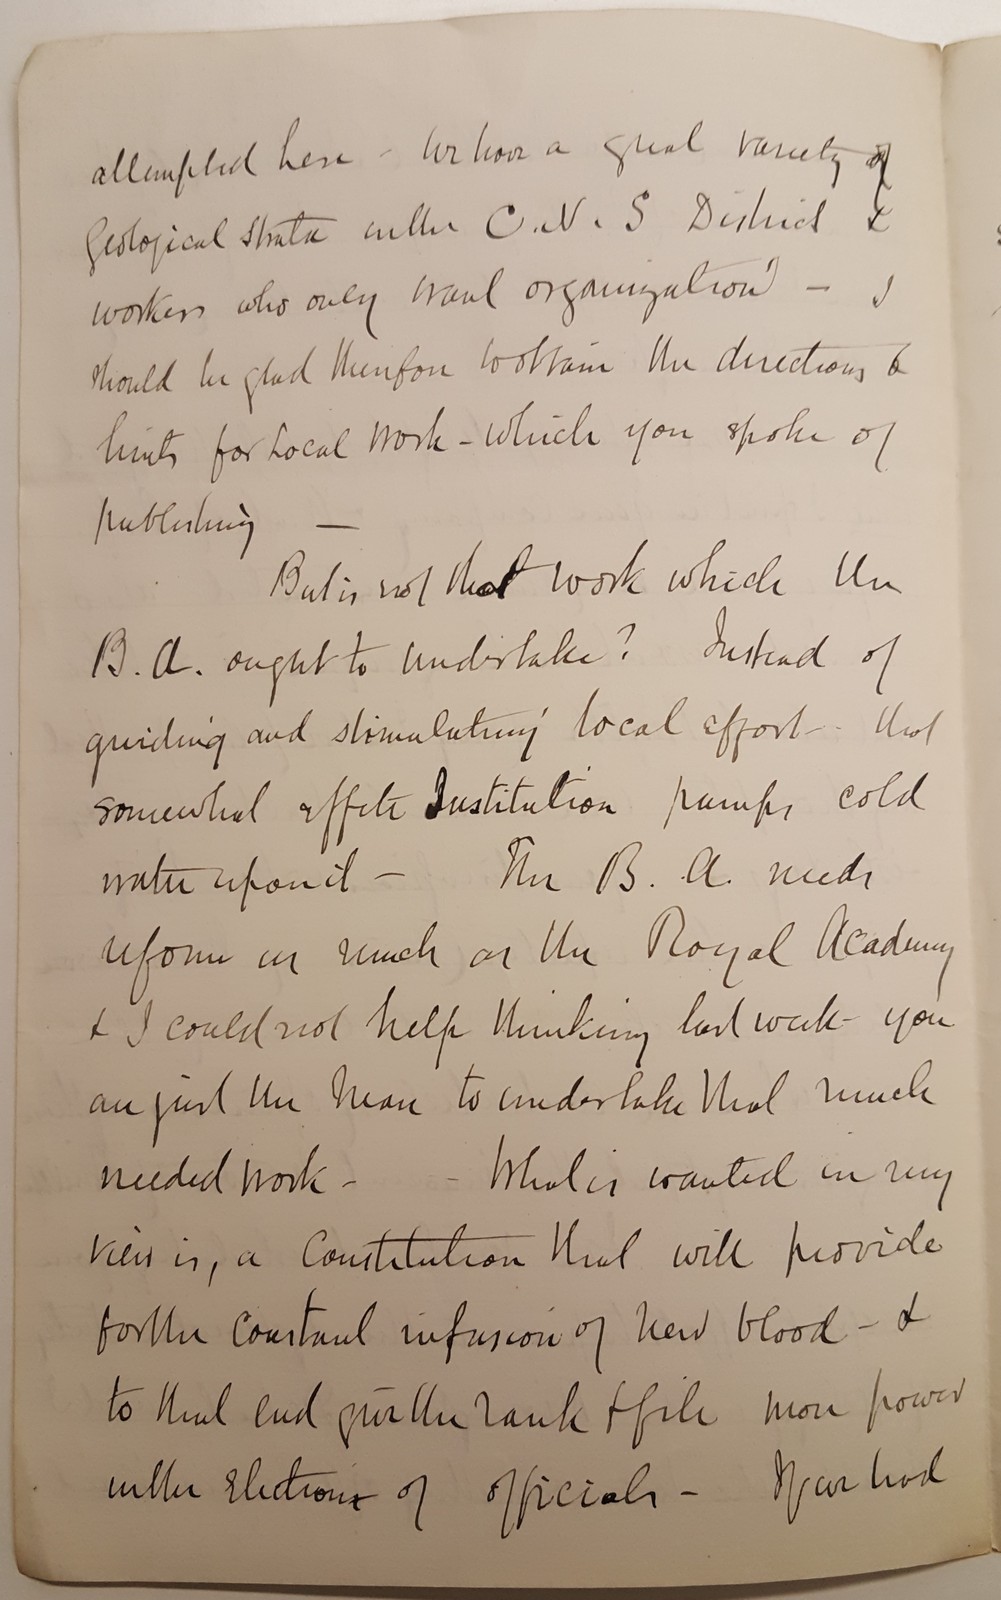 attempted here - We have a great variety of
Geological Strata in the C. N. S District &
workers who only want organization - I
should be glad therefore to obtain the directions &
hints for Local work - which you spoke of
publishing —
But is not that work which the
B. A. ought to undertake? Instead of
guiding and stimulating local effort - that
somewhat effete Institution pumps cold
water upon it - The B. A. needs
reform as much as the Royal Academy
& I could not help thinking last week you
are just the Man to undertake that much
needed work - - What is wanted in my
view is, a Constitution that will provide
for the constant infusion of new blood - &
to that end give the rank & file more power
in the Election of officials - If we had